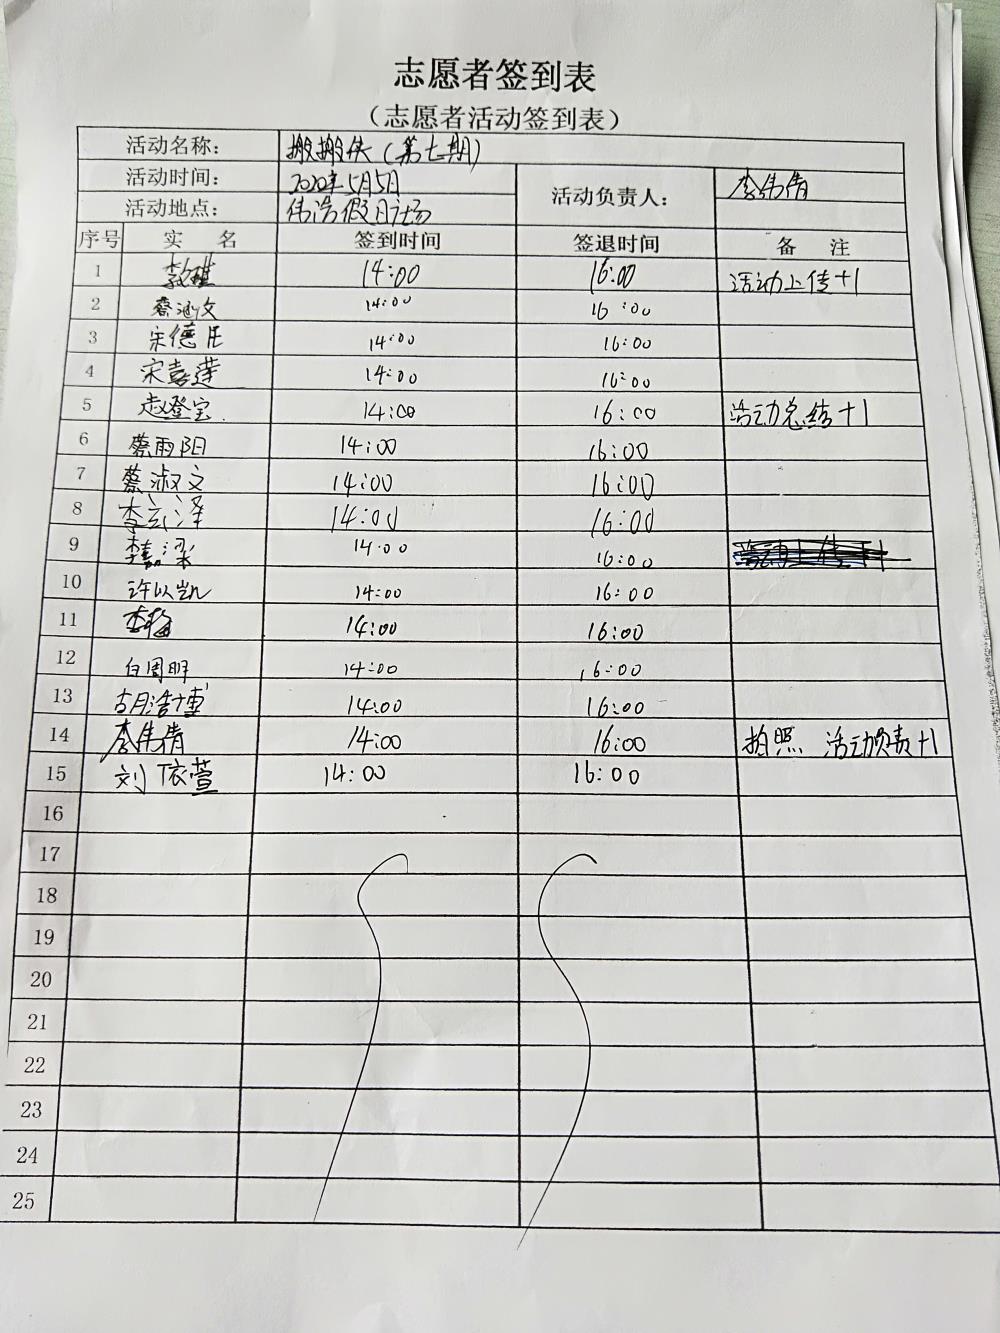 志愿者签到表
（志愿者活动签到表）
活动名称： 搬搬侠（第七期）
活动时间： 2020年5月5月 活动负责人： 李伟倩
活动地点： 伟浩假日广场
序号 实 名 签到时间 签退时间 备 注
1 14:00 16:00 活动上传+1
2 蔡涵文 14:00 16:00
3 宋德臣 14:00 16:00
4 宋嘉莲 14:00 16:00
5 赵登宝 14:00 16:00 活动总结+1
6 蔡雨阳 14:00 16:00
7 蔡淑文 14:00 16:00
8 李云泽 14:00 16:00
9 李嘉梁 14:00 16:00
10 许以凯 14:00 16:00
11 李梅 14:00 16:00
12 白周明 14:00 16:00
13 胡浩博 14:00 16:00
14 李伟倩 14:00 16:00 拍照 活动负责+1
15 刘依萱 14:00 16:00
16
17
18
19
20
21
22
23
24
25